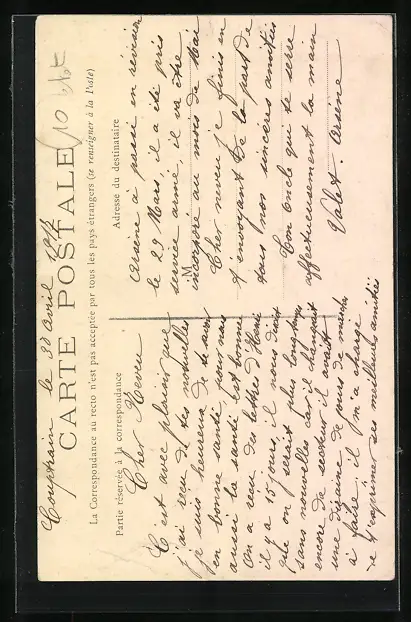 Couptrain le 30 avril
CARTE POSTALE
La Correspondance au recto n'est pas acceptée par tous les pays étrangers (se renseigner à la Poste)
Partie réservée à la correspondance
Cher Neveu
C'est avec plaisir que
j'ai reçu de tes nouvelles
je suis heureux de te savoir
en bonne santé pour nous
aussi la santé est bonne
On a reçu des lettres d'Henri
il y a 15 jours, il nous disait
qu'on serait plus longtemps
sans nouvelles car il changeait
encore de secteur il avait
une dizaine de jours de marche
à faire, il m'a chargé
de t'exprimer ses meilleures amitiés
Adresse du destinataire
M
Arsène a passé en révision
le 29 Mars, il a été pris
service armé, il va être
incorporé au mois de Mai
Cher neveu je finis en
t'envoyant de la part de
tous nos sincères amitiés
Ton oncle qui te serre
affectueusement la main
Valet. Arsène
10